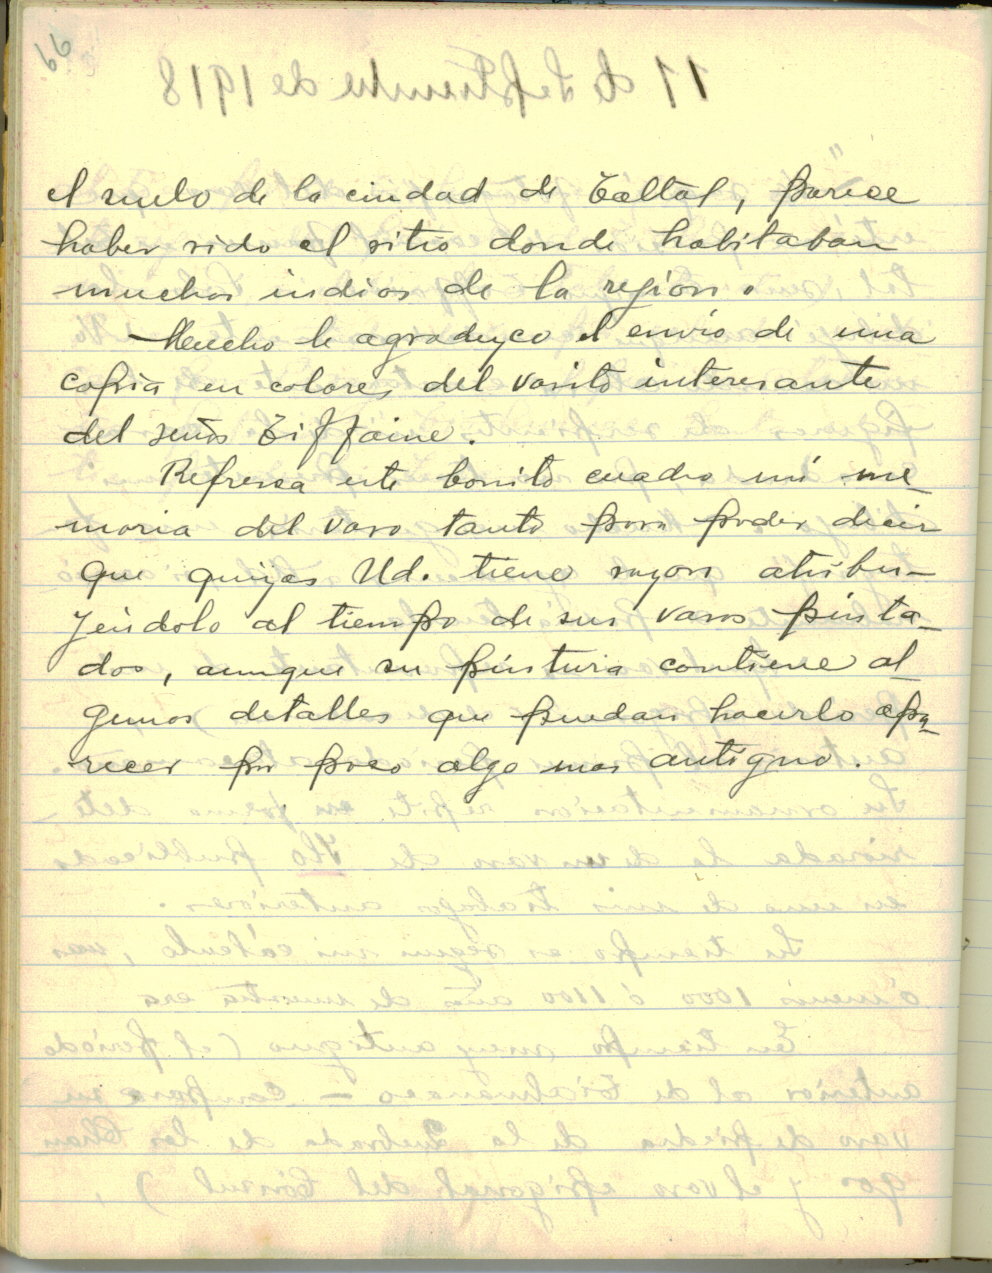 el suelo de la ciudad de Taltal, parece
haber sido el sitio donde habitaban
muchos indios de la region.
Mucho le agradezco el envío de una
copia en colores del vasito interesante
del señor Tiffaine.
Refresca este bonito cuadro mi me-
moria del vaso tanto para poder decir
que quizas Ud. tiene razon atribu-
yéndolo al tiempo de sus vasos pinta-
dos, aunque su pintura contiene al-
gunos detalles que puedan hacerlo apa-
recer por poco algo mas antiguo.